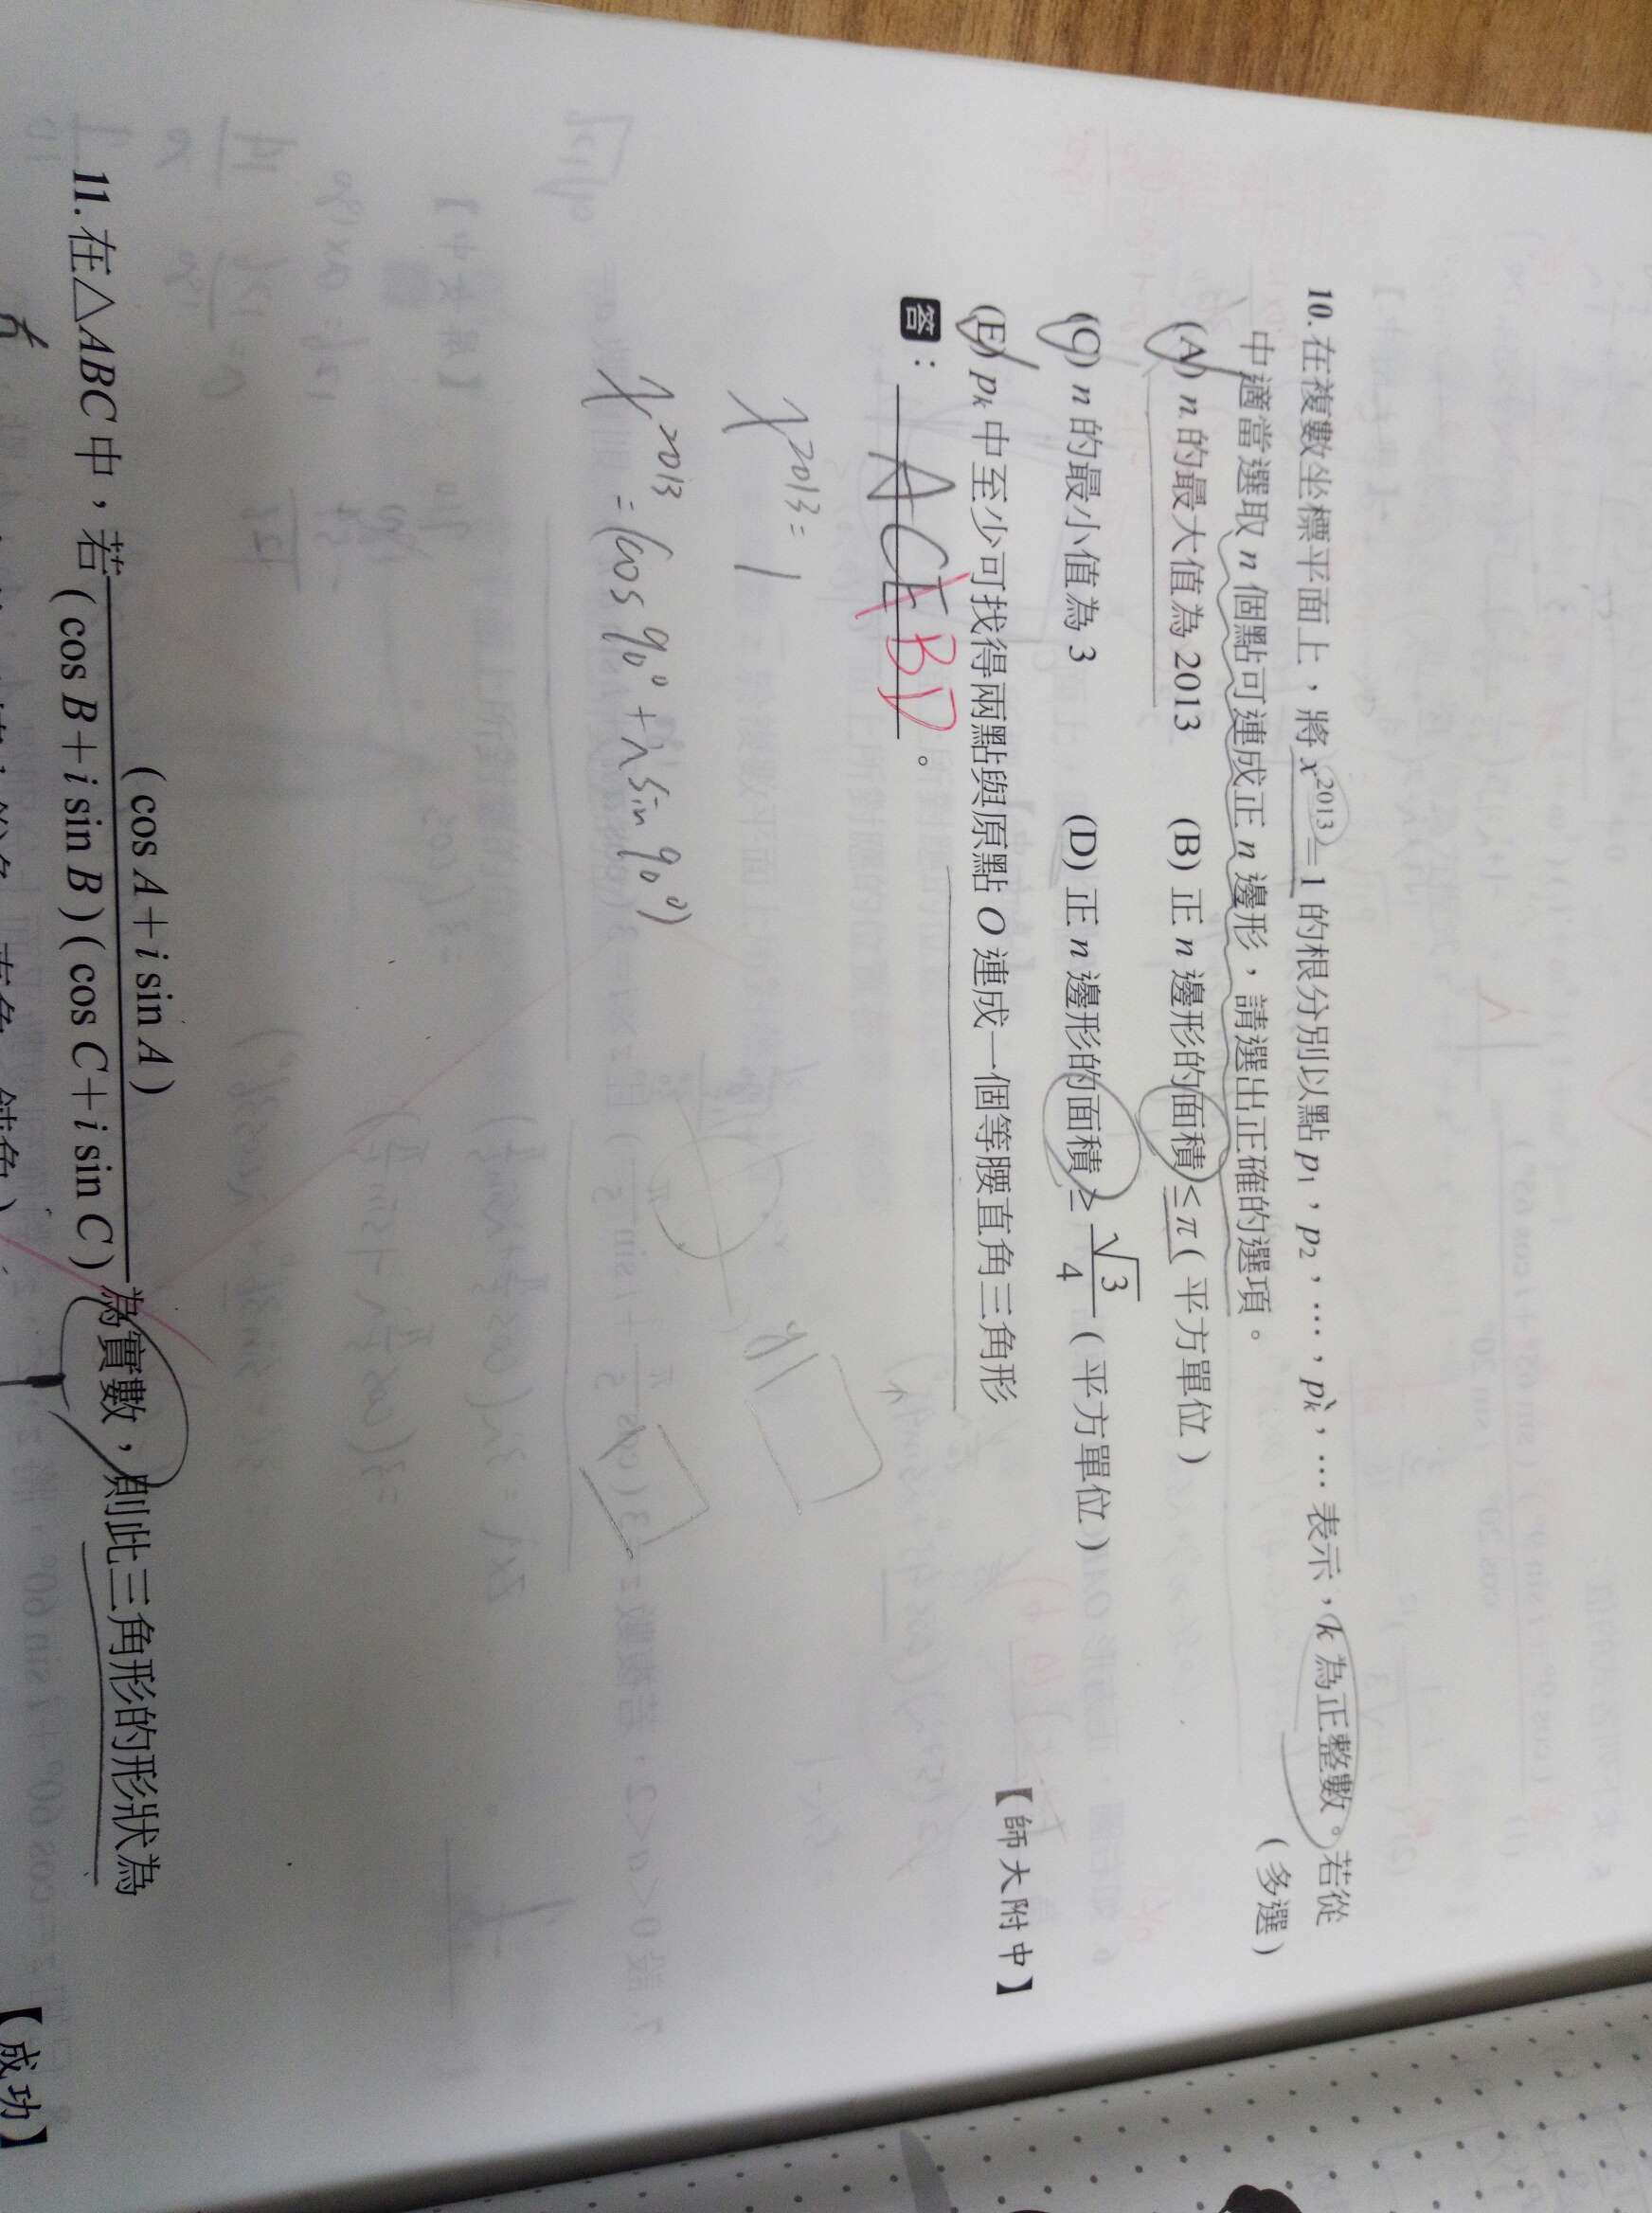 10. 在複數坐標平面上，將 x²⁰¹³=1 的根分別以點 p₁，p₂，…，pₖ，… 表示，k 為正整數。若從
中適當選取 n 個點可連成正 n 邊形，請選出正確的選項。 (多選)
(A) n 的最大值為 2013 (B) 正 n 邊形的面積 ≤ π (平方單位)
(C) n 的最小值為 3 (D) 正 n 邊形的面積 ≥ √3/4 (平方單位)
(E) pₖ 中至少可找得兩點與原點 O 連成一個等腰直角三角形
【師大附中】
答： ACE BD 。
x²⁰¹³ = 1
x²⁰¹³ = (cos 90° + i sin 90°)
11. 在△ABC 中，若 (cos A + i sin A) / (cos B + i sin B)(cos C + i sin C) 為實數，則此三角形的形狀為
【成功】